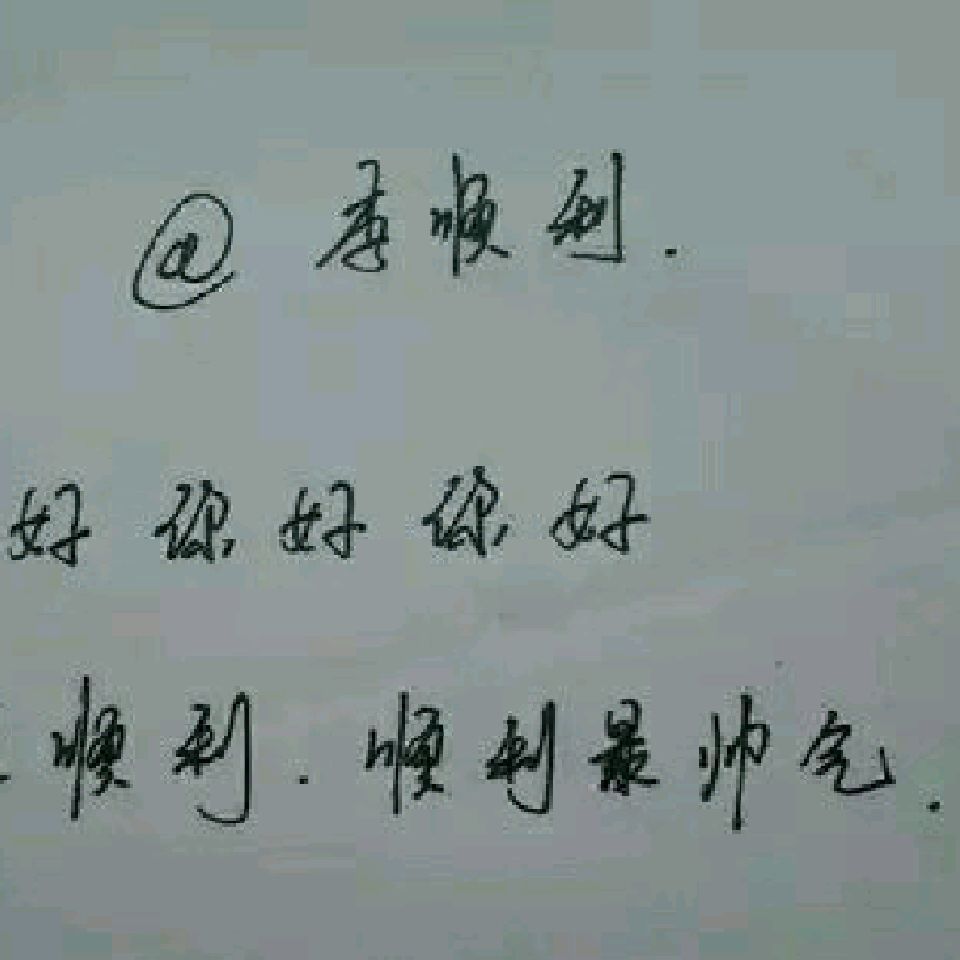 @ 李顺利.
好 你 好 你 好
. 顺利. 顺利最帅气.